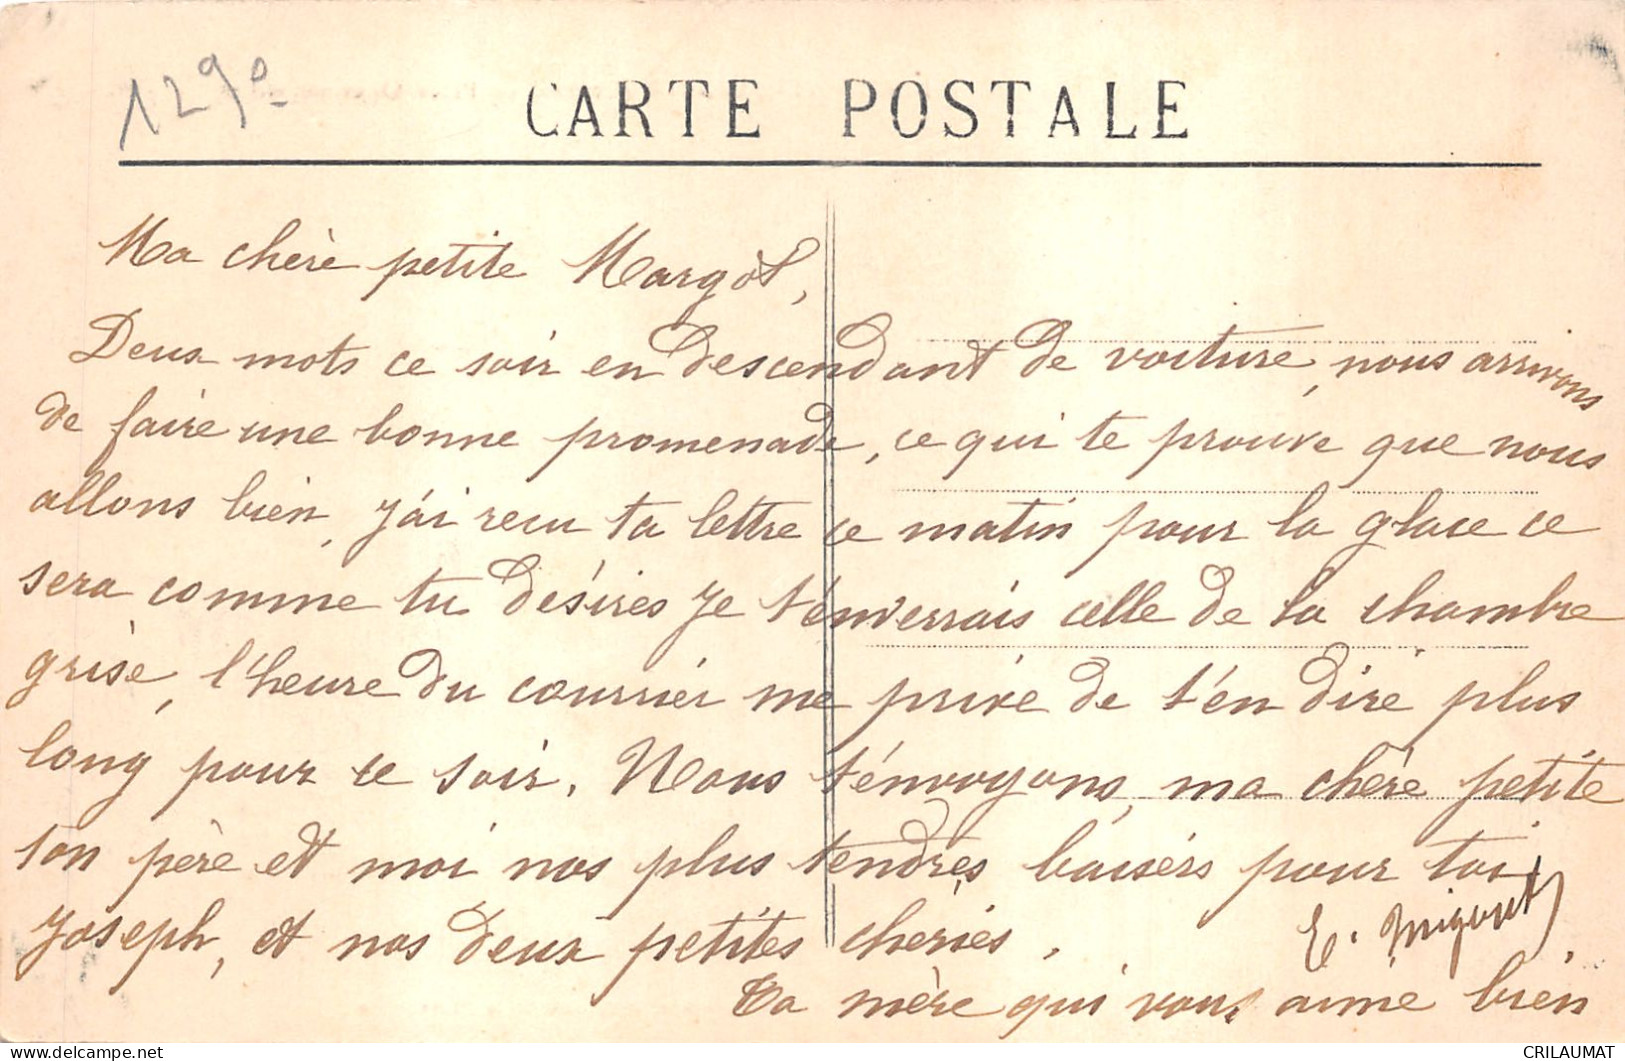 1290
CARTE POSTALE
Ma chère petite Margot,
Deux mots ce soir en descendant de voiture, nous arrivons
de faire une bonne promenade, ce qui te prouve que nous
allons bien, j'ai recu ta lettre ce matin pour la glace ce
sera comme tu désires je t'enverrais celle de la chambre
grise, l'heure du courrier me prive de t'en dire plus
long pour ce soir. Nous t'envoyons, ma chère petite
ton père et moi nos plus tendres baisers pour toi
Joseph, et nos deux petites cheries.
E. Migout
Ta mère qui vous aime bien
CRILAUMAT